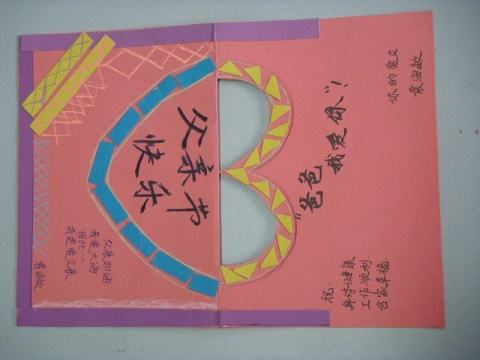 父亲节
快乐
父亲如海
我是大海
我更爱父亲
"爸爸
我爱你"!
祝:
身体健康
工作顺利
合家幸福
你的爱女
袁海敏